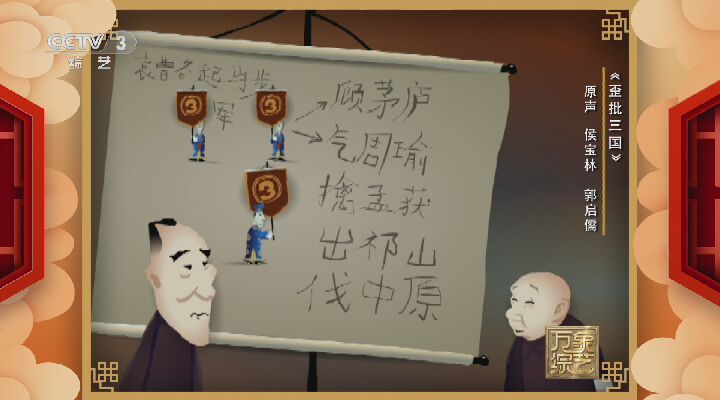 CCTV 3
综艺
袁曹各起马步
军
3
3
3
顾茅庐
气周瑜
擒孟获
出祁山
伐中原
《歪批三国》
原声 侯宝林 郭启儒
万象
综艺